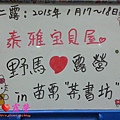 二露：2015年1月17~18日
泰雅宝貝屋
野馬♥露營
in 苗栗"茶書坊"